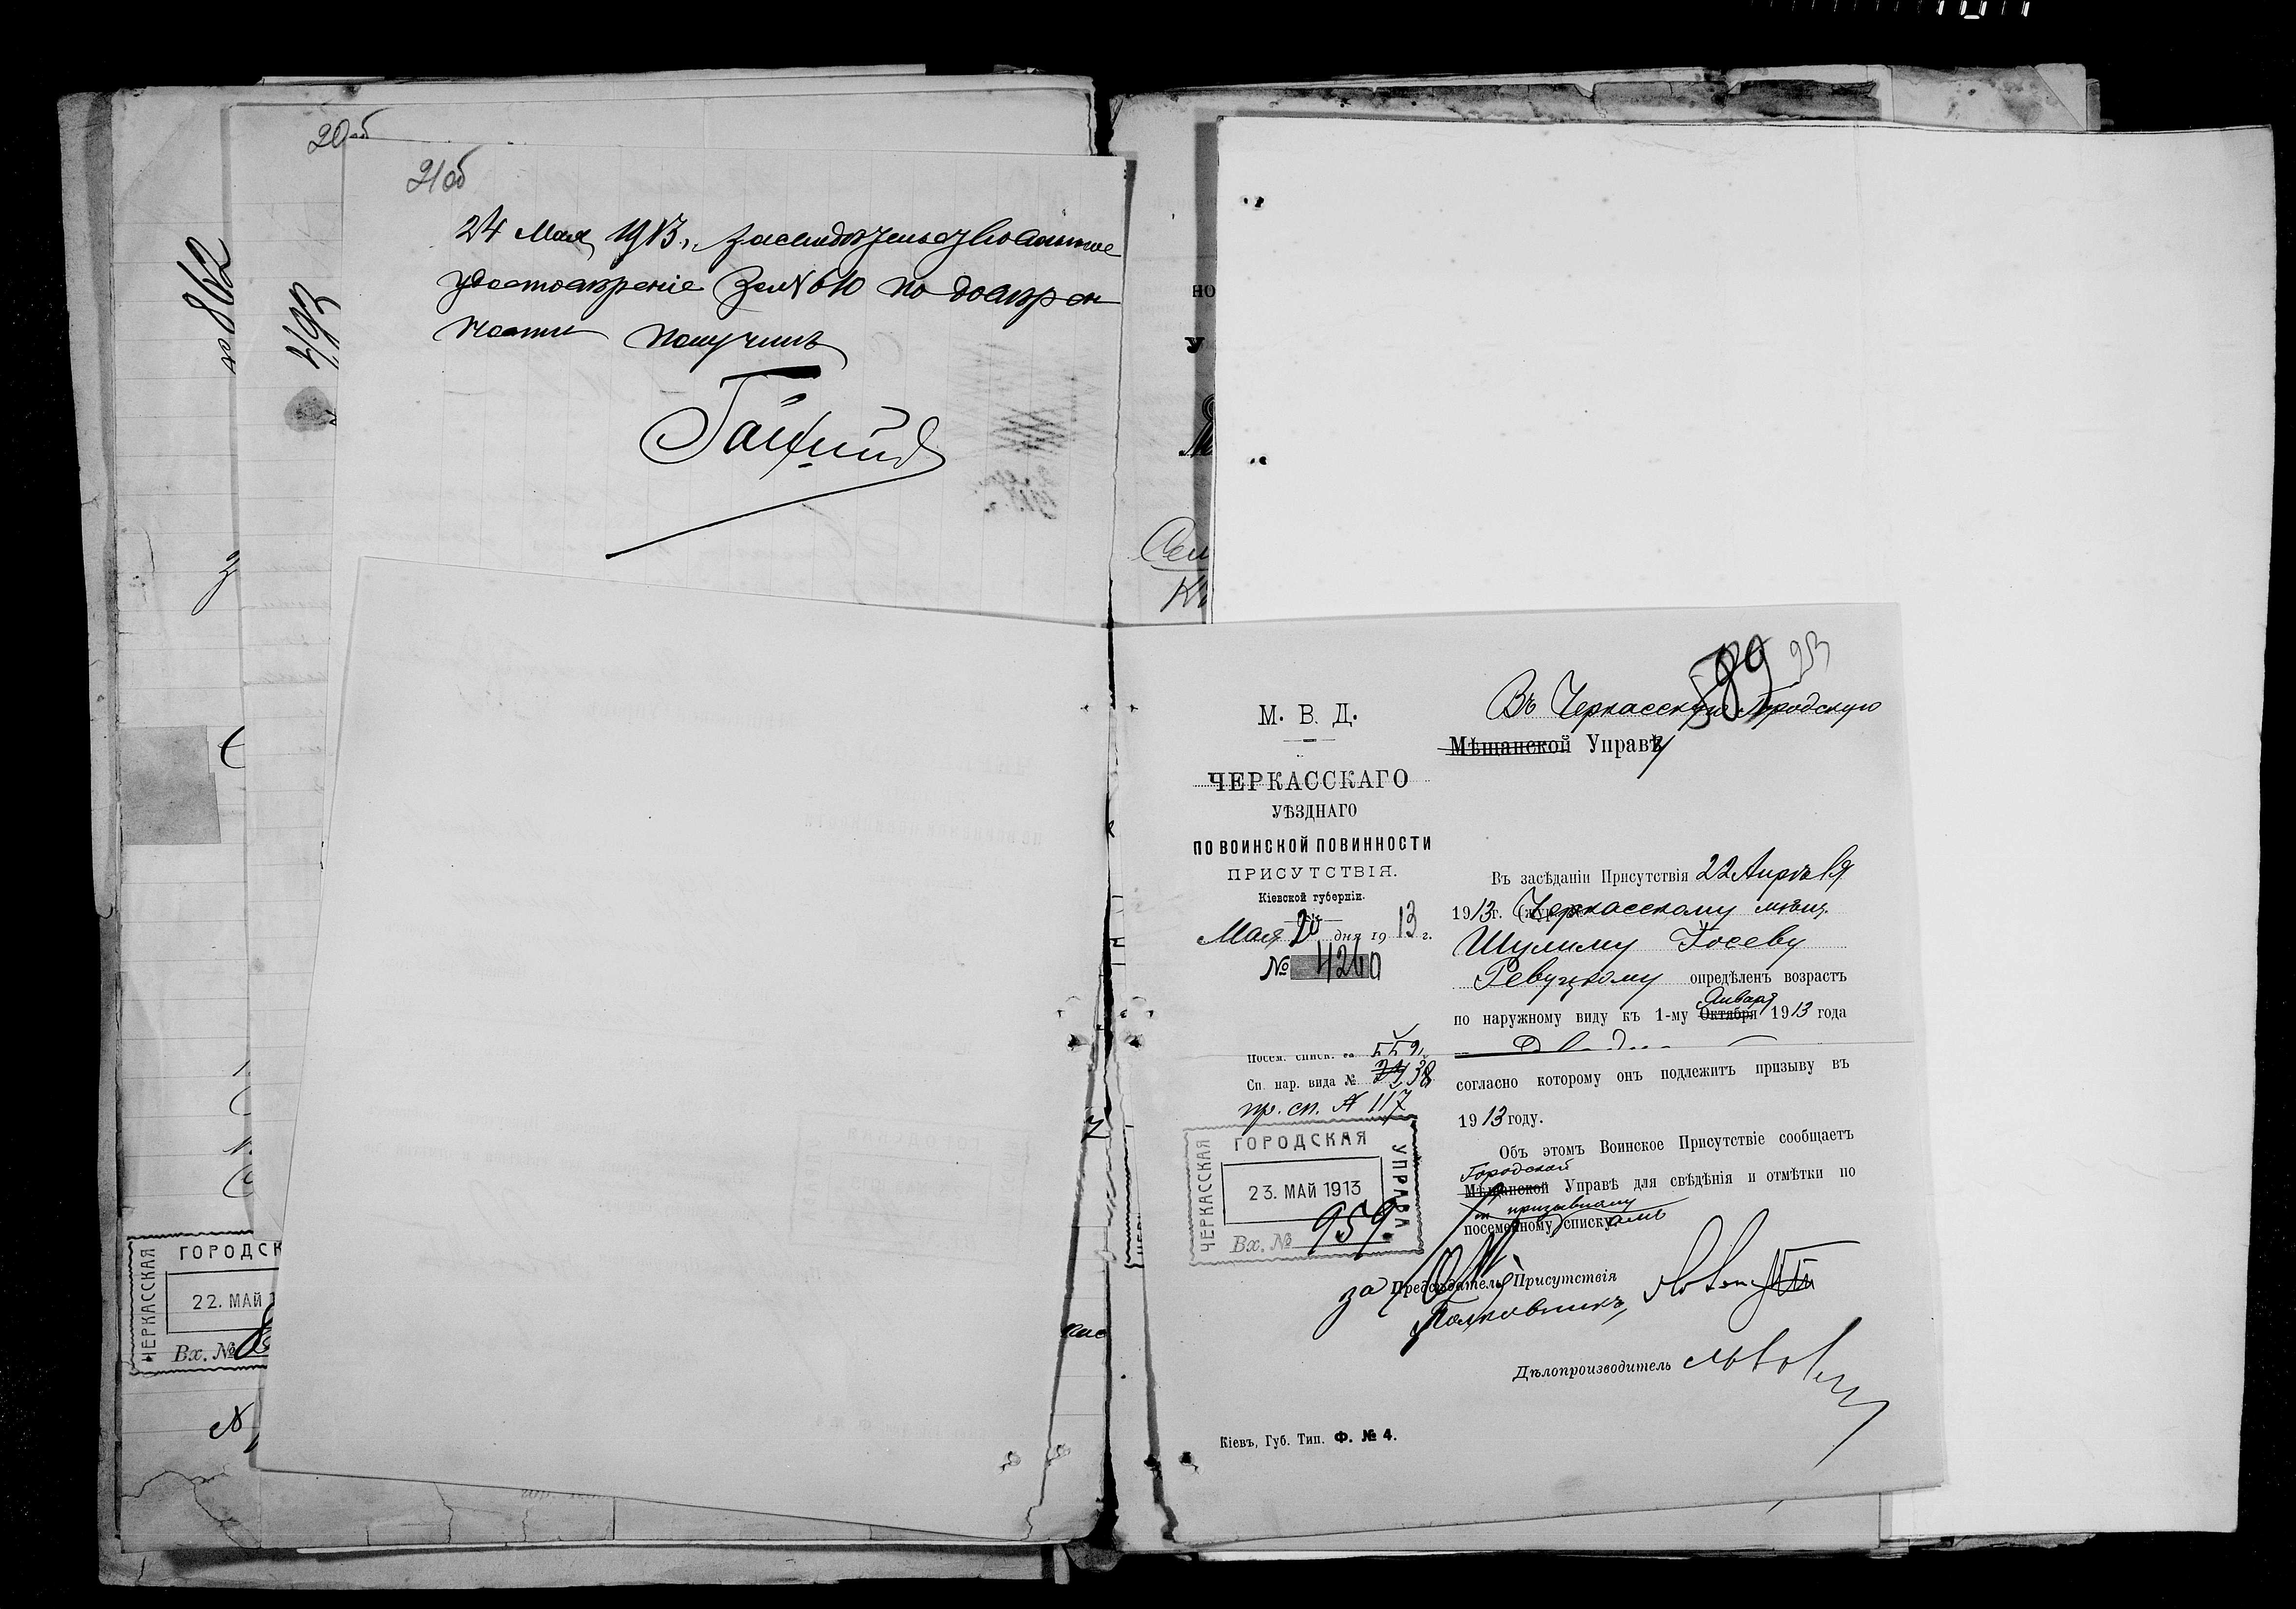 20об
21об
24 Мая 1913 г. засвидетельствованное
удостовѣреніе за № 610 по довѣрен
ности получилъ
№ 862
493
ЧЕРКАССКАЯ
ГОРОДСК
22. МАЙ 1
Вх. №
589
23
М. В. Д.
ЧЕРКАССКАГО
УѢЗДНАГО
ПО ВОИНСКОЙ ПОВИННОСТИ
ПРИСУТСТВІЯ.
Кіевской губерніи.
Мая 20 дня 1913 г.
№ 4260
Посем. списк. 559
Сп. нар. вида № 38
пр. сп. А 117
ЧЕРКАССКАЯ
ГОРОДСКАЯ
УПРАВА
23. МАЙ 1913
Вх. № 959
Въ Черкасскую Городскую
Мѣщанской Управу
Въ засѣданіи Присутствія 22 Апрѣля
1913 г. Черкасскому мѣщ.
Шулиму Іосеву
Ревуцкому опредѣленъ возрастъ
Января
по наружному виду къ 1-му Октября 1913 года
согласно которому онъ подлежитъ призыву въ
1913 году.
Объ этомъ Воинское Присутствіе сообщаетъ
Городской
Мѣщанской Управѣ для свѣдѣнія и отмѣтки по
и призывному
посемейному спискамъ
за Предсѣдатель Присутствія
Полковникъ
Дѣлопроизводитель
Кіевъ, Губ. Тип. Ф. № 4.